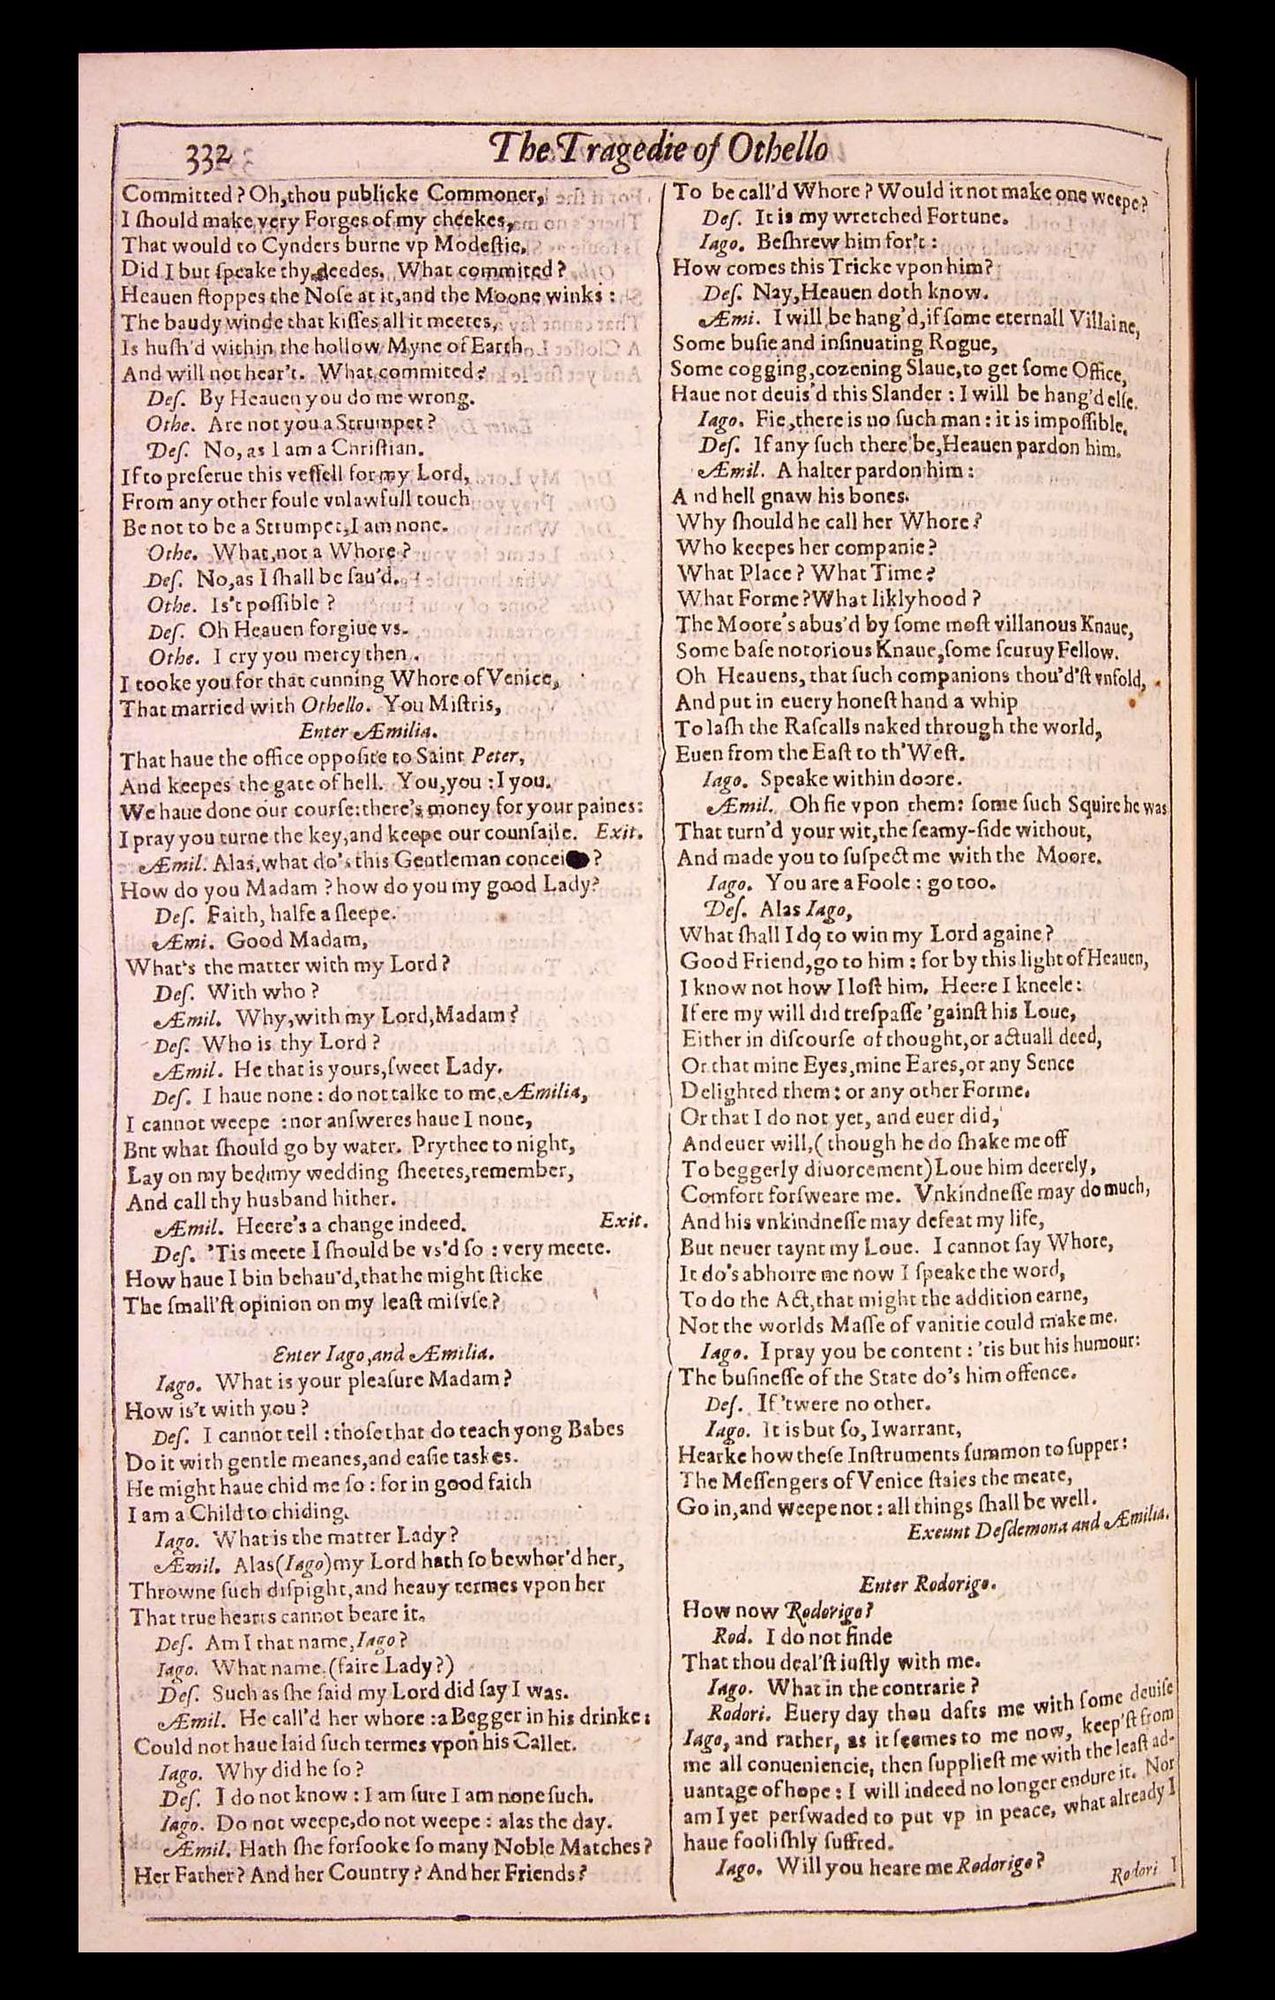 332
The Tragedie of Othello
Committed? Oh, thou publicke Commoner,
I ſhould make very Forges of my cheekes,
That would to Cynders burne vp Modeſtie,
Did I but ſpeake thy deedes. What commited?
Heauen ſtoppes the Noſe at it, and the Moone winks:
The baudy winde that kiſſes all it meetes,
Is huſh'd within the hollow Myne of Earth
And will not hear't. What commited?
Deſ. By Heauen you do me wrong.
Othe. Are not you a Strumpet?
Deſ. No, as I am a Chriſtian.
If to preſerue this veſſell for my Lord,
From any other foule vnlawfull touch
Be not to be a Strumpet, I am none.
Othe. What, not a Whore?
Deſ. No, as I ſhall be ſau'd.
Othe. Is't poſſible?
Deſ. Oh Heauen forgiue vs.
Othe. I cry you mercy then.
I tooke you for that cunning Whore of Venice,
That married with Othello. You Miſtris,
Enter Æmilia.
That haue the office oppoſite to Saint Peter,
And keepes the gate of hell. You, you: I you.
We haue done our courſe: there's money for your paines:
I pray you turne the key, and keepe our counſaile. Exit.
Æmil. Alas, what do's this Gentleman ?
How do you Madam? how do you my good Lady?
Deſ. Faith, halfe a ſleepe.
Æmi. Good Madam,
What's the matter with my Lord?
Deſ. With who?
Æmil. Why, with my Lord, Madam?
Deſ. Who is thy Lord?
Æmil. He that is yours, ſweet Lady.
Deſ. I haue none: do not talke to me, Æmilia,
I cannot weepe: nor anſweres haue I none,
Bnt what ſhould go by water. Prythee to night,
Lay on my bed my wedding ſheetes, remember,
And call thy husband hither.
Æmil. Heere's a change indeed. Exit.
Deſ. 'Tis meete I ſhould be vs'd ſo: very meete.
How haue I bin behau'd, that he might ſticke
The ſmall'ſt opinion on my leaſt miſvſe?
Enter Iago, and Æmilia.
Iago. What is your pleaſure Madam?
How is't with you?
Deſ. I cannot tell: thoſe that do teach yong Babes
Do it with gentle meanes, and eaſie taskes.
He might haue chid me ſo: for in good faith
I am a Child to chiding.
Iago. What is the matter Lady?
Æmil. Alas (Iago) my Lord hath ſo bewhor'd her,
Throwne ſuch diſpight, and heauy termes vpon her
That true hearts cannot beare it.
Deſ. Am I that name, Iago?
Iago. What name, (faire Lady?)
Deſ. Such as ſhe ſaid my Lord did ſay I was.
Æmil. He call'd her whore: a Begger in his drinke:
Could not haue laid ſuch termes vpon his Callet.
Iago. Why did he ſo?
Deſ. I do not know: I am ſure I am none ſuch.
Iago. Do not weepe, do not weepe: alas the day.
Æmil. Hath ſhe forſooke ſo many Noble Matches?
Her Father? And her Country? And her Friends?
To be call'd Whore? Would it not make one weepe?
Deſ. It is my wretched Fortune.
Iago. Beſhrew him for't:
How comes this Tricke vpon him?
Deſ. Nay, Heauen doth know.
Æmi. I will be hang'd, if ſome eternall Villaine,
Some buſie and inſinuating Rogue,
Some cogging, cozening Slaue, to get ſome Office,
Haue not deuis'd this Slander: I will be hang'd elſe.
Iago. Fie, there is no ſuch man: it is impoſſible.
Deſ. If any ſuch there be, Heauen pardon him.
Æmil. A halter pardon him:
And hell gnaw his bones.
Why ſhould he call her Whore?
Who keepes her companie?
What Place? What Time?
What Forme? What liklyhood?
The Moore's abus'd by ſome moſt villanous Knaue,
Some baſe notorious Knaue, ſome ſcuruy Fellow.
Oh Heauens, that ſuch companions thou'd'ſt vnfold,
And put in euery honeſt hand a whip
To laſh the Raſcalls naked through the world,
Euen from the Eaſt to th'Weſt.
Iago. Speake within doore.
Æmil. Oh fie vpon them: ſome ſuch Squire he was
That turn'd your wit, the ſeamy-ſide without,
And made you to ſuſpect me with the Moore.
Iago. You are a Foole: go too.
Deſ. Alas Iago,
What ſhall I do to win my Lord againe?
Good Friend, go to him: for by this light of Heauen,
I know not how I loſt him. Heere I kneele:
If ere my will did treſpaſſe 'gainſt his Loue,
Either in diſcourſe of thought, or actuall deed,
Or that mine Eyes, mine Eares, or any Sence
Delighted them: or any other Forme.
Or that I do not yet, and euer did,
And euer will, (though he do ſhake me off
To beggerly diuorcement) Loue him deerely,
Comfort forſweare me. Vnkindneſſe may do much,
And his vnkindneſſe may defeat my life,
But neuer taynt my Loue. I cannot ſay Whore,
It do's abhorre me now I ſpeake the word,
To do the Act, that might the addition earne,
Not the worlds Maſſe of vanitie could make me.
Iago. I pray you be content: 'tis but his humour:
The buſineſſe of the State do's him offence.
Deſ. If 'twere no other.
Iago. It is but ſo, I warrant,
Hearke how theſe Inſtruments ſummon to ſupper:
The Meſſengers of Venice ſtaies the meate,
Go in, and weepe not: all things ſhall be well.
Exeunt Deſdemona and Æmilia.
Enter Rodorigo.
How now Rodorigo?
Rod. I do not finde
That thou deal'ſt iuſtly with me.
Iago. What in the contrarie?
Rodori. Euery day thou dafts me with ſome deuiſe
Iago, and rather, as it ſeemes to me now, keep'ſt from
me all conueniencie, then ſupplieſt me with the leaſt ad-
uantage of hope: I will indeed no longer endure it. Nor
am I yet perſwaded to put vp in peace, what already I
haue fooliſhly ſuffred.
Iago. Will you heare me Rodorigo?
Rodori I